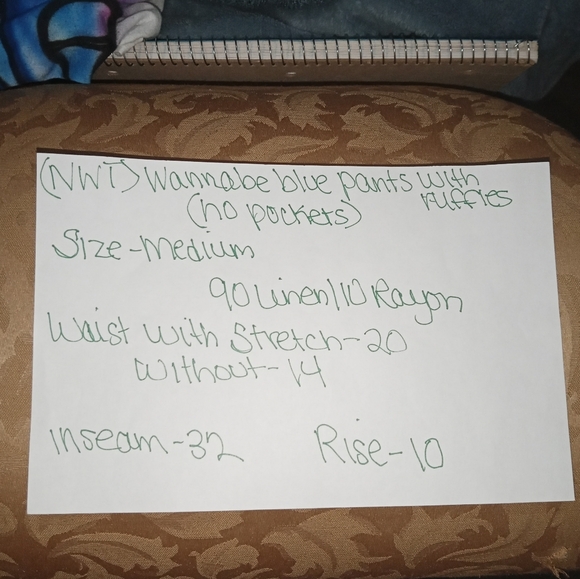 (NWT) Wannabe blue pants with ruffles
(no pockets)
Size-Medium
90 Linen/10 Rayon
Waist with Stretch-20
Without-14
inseam-32 Rise-10